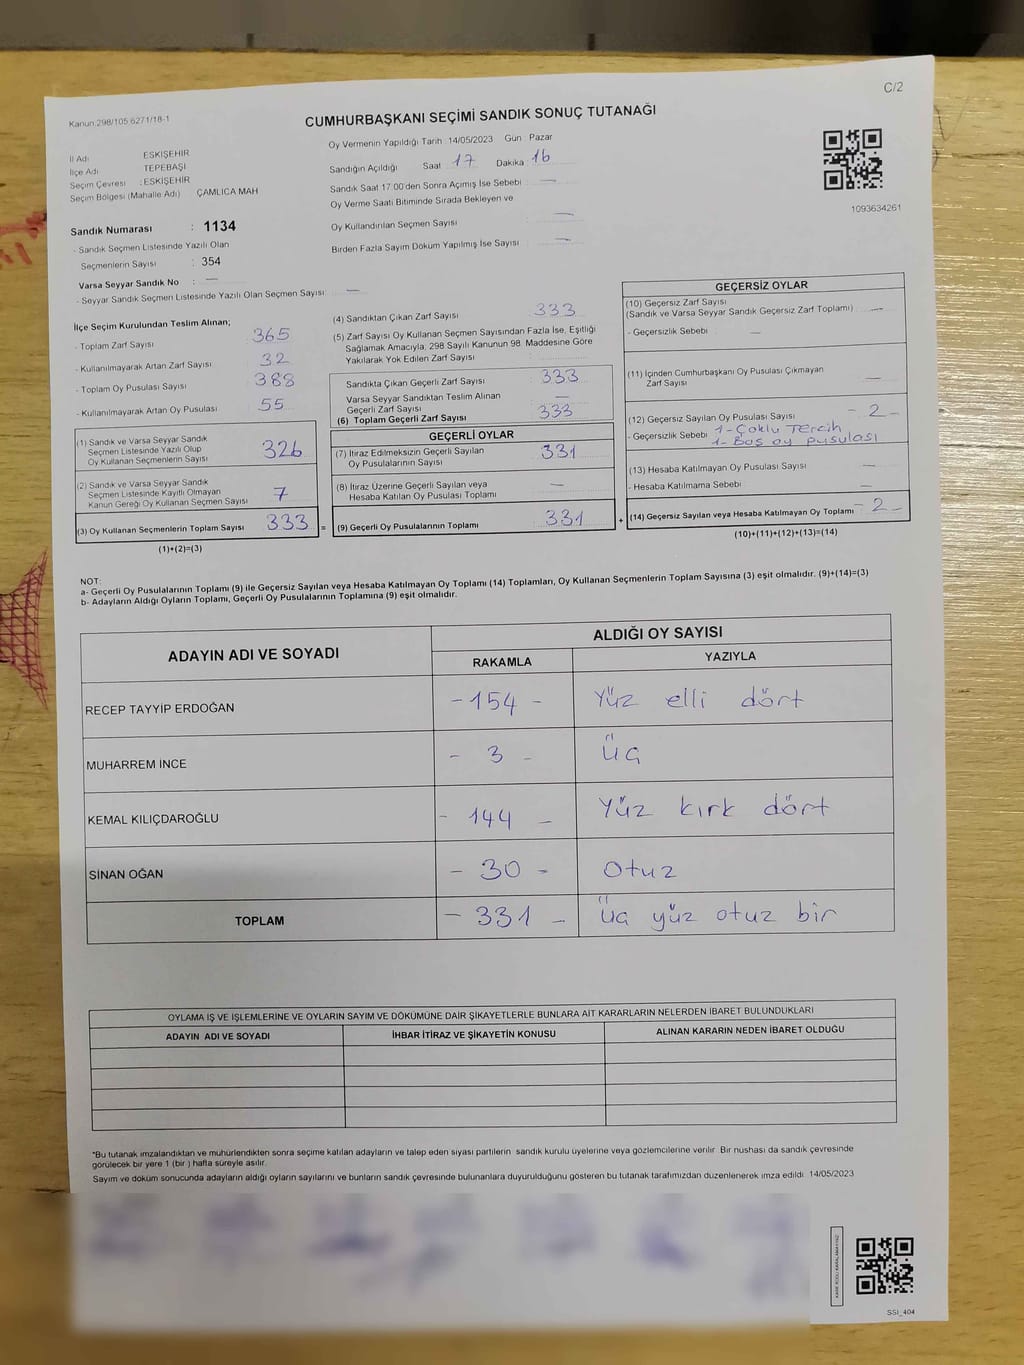 C/2
Kanun:298/105 6271/18-1
CUMHURBAŞKANI SEÇİMİ SANDIK SONUÇ TUTANAĞI
İl Adı ESKİŞEHİR
İlçe Adı TEPEBAŞI
Seçim Çevresi : ESKİŞEHİR
Seçim Bölgesi (Mahalle Adı) ÇAMLICA MAH
Sandık Numarası : 1134
- Sandık Seçmen Listesinde Yazılı Olan
Seçmenlerin Sayısı : 354
Varsa Seyyar Sandık No : —
- Seyyar Sandık Seçmen Listesinde Yazılı Olan Seçmen Sayısı : —
Oy Vermenin Yapıldığı Tarih 14/05/2023 Gün Pazar
Sandığın Açıldığı Saat 17 Dakika 16
Sandık Saat 17:00'den Sonra Açımış İse Sebebi : —
Oy Verme Saati Bitiminde Sırada Bekleyen ve
Oy Kullandırılan Seçmen Sayısı —
Birden Fazla Sayım Döküm Yapılmış İse Sayısı —
1093634261
İlçe Seçim Kurulundan Teslim Alınan;
- Toplam Zarf Sayısı 365
- Kullanılmayarak Artan Zarf Sayısı 32
- Toplam Oy Pusulası Sayısı 388
- Kullanılmayarak Artan Oy Pusulası 55
(1) Sandık ve Varsa Seyyar Sandık
Seçmen Listesinde Yazılı Olup
Oy Kullanan Seçmenlerin Sayısı 326
(2) Sandık ve Varsa Seyyar Sandık
Seçmen Listesinde Kayıtlı Olmayan
Kanun Gereği Oy Kullanan Seçmen Sayısı 7
(3) Oy Kullanan Seçmenlerin Toplam Sayısı 333 =
(1)+(2)=(3)
(4) Sandıktan Çıkan Zarf Sayısı 333
(5) Zarf Sayısı Oy Kullanan Seçmen Sayısından Fazla İse, Eşitliği
Sağlamak Amacıyla, 298 Sayılı Kanunun 98. Maddesine Göre
Yakılarak Yok Edilen Zarf Sayısı
Sandıkta Çıkan Geçerli Zarf Sayısı 333
Varsa Seyyar Sandıktan Teslim Alınan
Geçerli Zarf Sayısı —
(6) Toplam Geçerli Zarf Sayısı 333
GEÇERLİ OYLAR
(7) İtiraz Edilmeksizin Geçerli Sayılan
Oy Pusulalarının Sayısı 331
(8) İtiraz Üzerine Geçerli Sayılan veya
Hesaba Katılan Oy Pusulası Toplamı —
(9) Geçerli Oy Pusulalarının Toplamı 331 +
GEÇERSİZ OYLAR
(10) Geçersiz Zarf Sayısı
(Sandık ve Varsa Seyyar Sandık Geçersiz Zarf Toplamı) —
- Geçersizlik Sebebi : —
(11) İçinden Cumhurbaşkanı Oy Pusulası Çıkmayan
Zarf Sayısı —
(12) Geçersiz Sayılan Oy Pusulası Sayısı - 2 -
- Geçersizlik Sebebi 1-Çoklu Tercih
1-Boş oy pusulası
(13) Hesaba Katılmayan Oy Pusulası Sayısı —
- Hesaba Katılmama Sebebi : —
(14) Geçersiz Sayılan veya Hesaba Katılmayan Oy Toplamı - 2 -
(10)+(11)+(12)+(13)=(14)
NOT:
a- Geçerli Oy Pusulalarının Toplamı (9) ile Geçersiz Sayılan veya Hesaba Katılmayan Oy Toplamı (14) Toplamları, Oy Kullanan Seçmenlerin Toplam Sayısına (3) eşit olmalıdır. (9)+(14)=(3)
b- Adayların Aldığı Oyların Toplamı, Geçerli Oy Pusulalarının Toplamına (9) eşit olmalıdır.
ADAYIN ADI VE SOYADI ALDIĞI OY SAYISI
RAKAMLA YAZIYLA
RECEP TAYYİP ERDOĞAN - 154 - Yüz elli dört
MUHARREM İNCE - 3 - üç
KEMAL KILIÇDAROĞLU - 144 - Yüz kırk dört
SİNAN OĞAN - 30 - otuz
TOPLAM - 331 - üç yüz otuz bir
OYLAMA İŞ VE İŞLEMLERİNE VE OYLARIN SAYIM VE DÖKÜMÜNE DAİR ŞİKAYETLERLE BUNLARA AİT KARARLARIN NELERDEN İBARET BULUNDUKLARI
ADAYIN ADI VE SOYADI İHBAR İTİRAZ VE ŞİKAYETİN KONUSU ALINAN KARARIN NEDEN İBARET OLDUĞU
*Bu tutanak imzalandıktan ve mühürlendikten sonra seçime katılan adayların ve talep eden siyasi partilerin sandık kurulu üyelerine veya gözlemcilerine verilir. Bir nushası da sandık çevresinde
görülecek bir yere 1 (bir) hafta süreyle asılır.
Sayım ve döküm sonucunda adayların aldığı oyların sayılarını ve bunların sandık çevresinde bulunanlara duyurulduğunu gösteren bu tutanak tarafımızdan düzenlenerek imza edildi. 14/05/2023
KARE KODU KARALAMAYINIZ
SSI_404